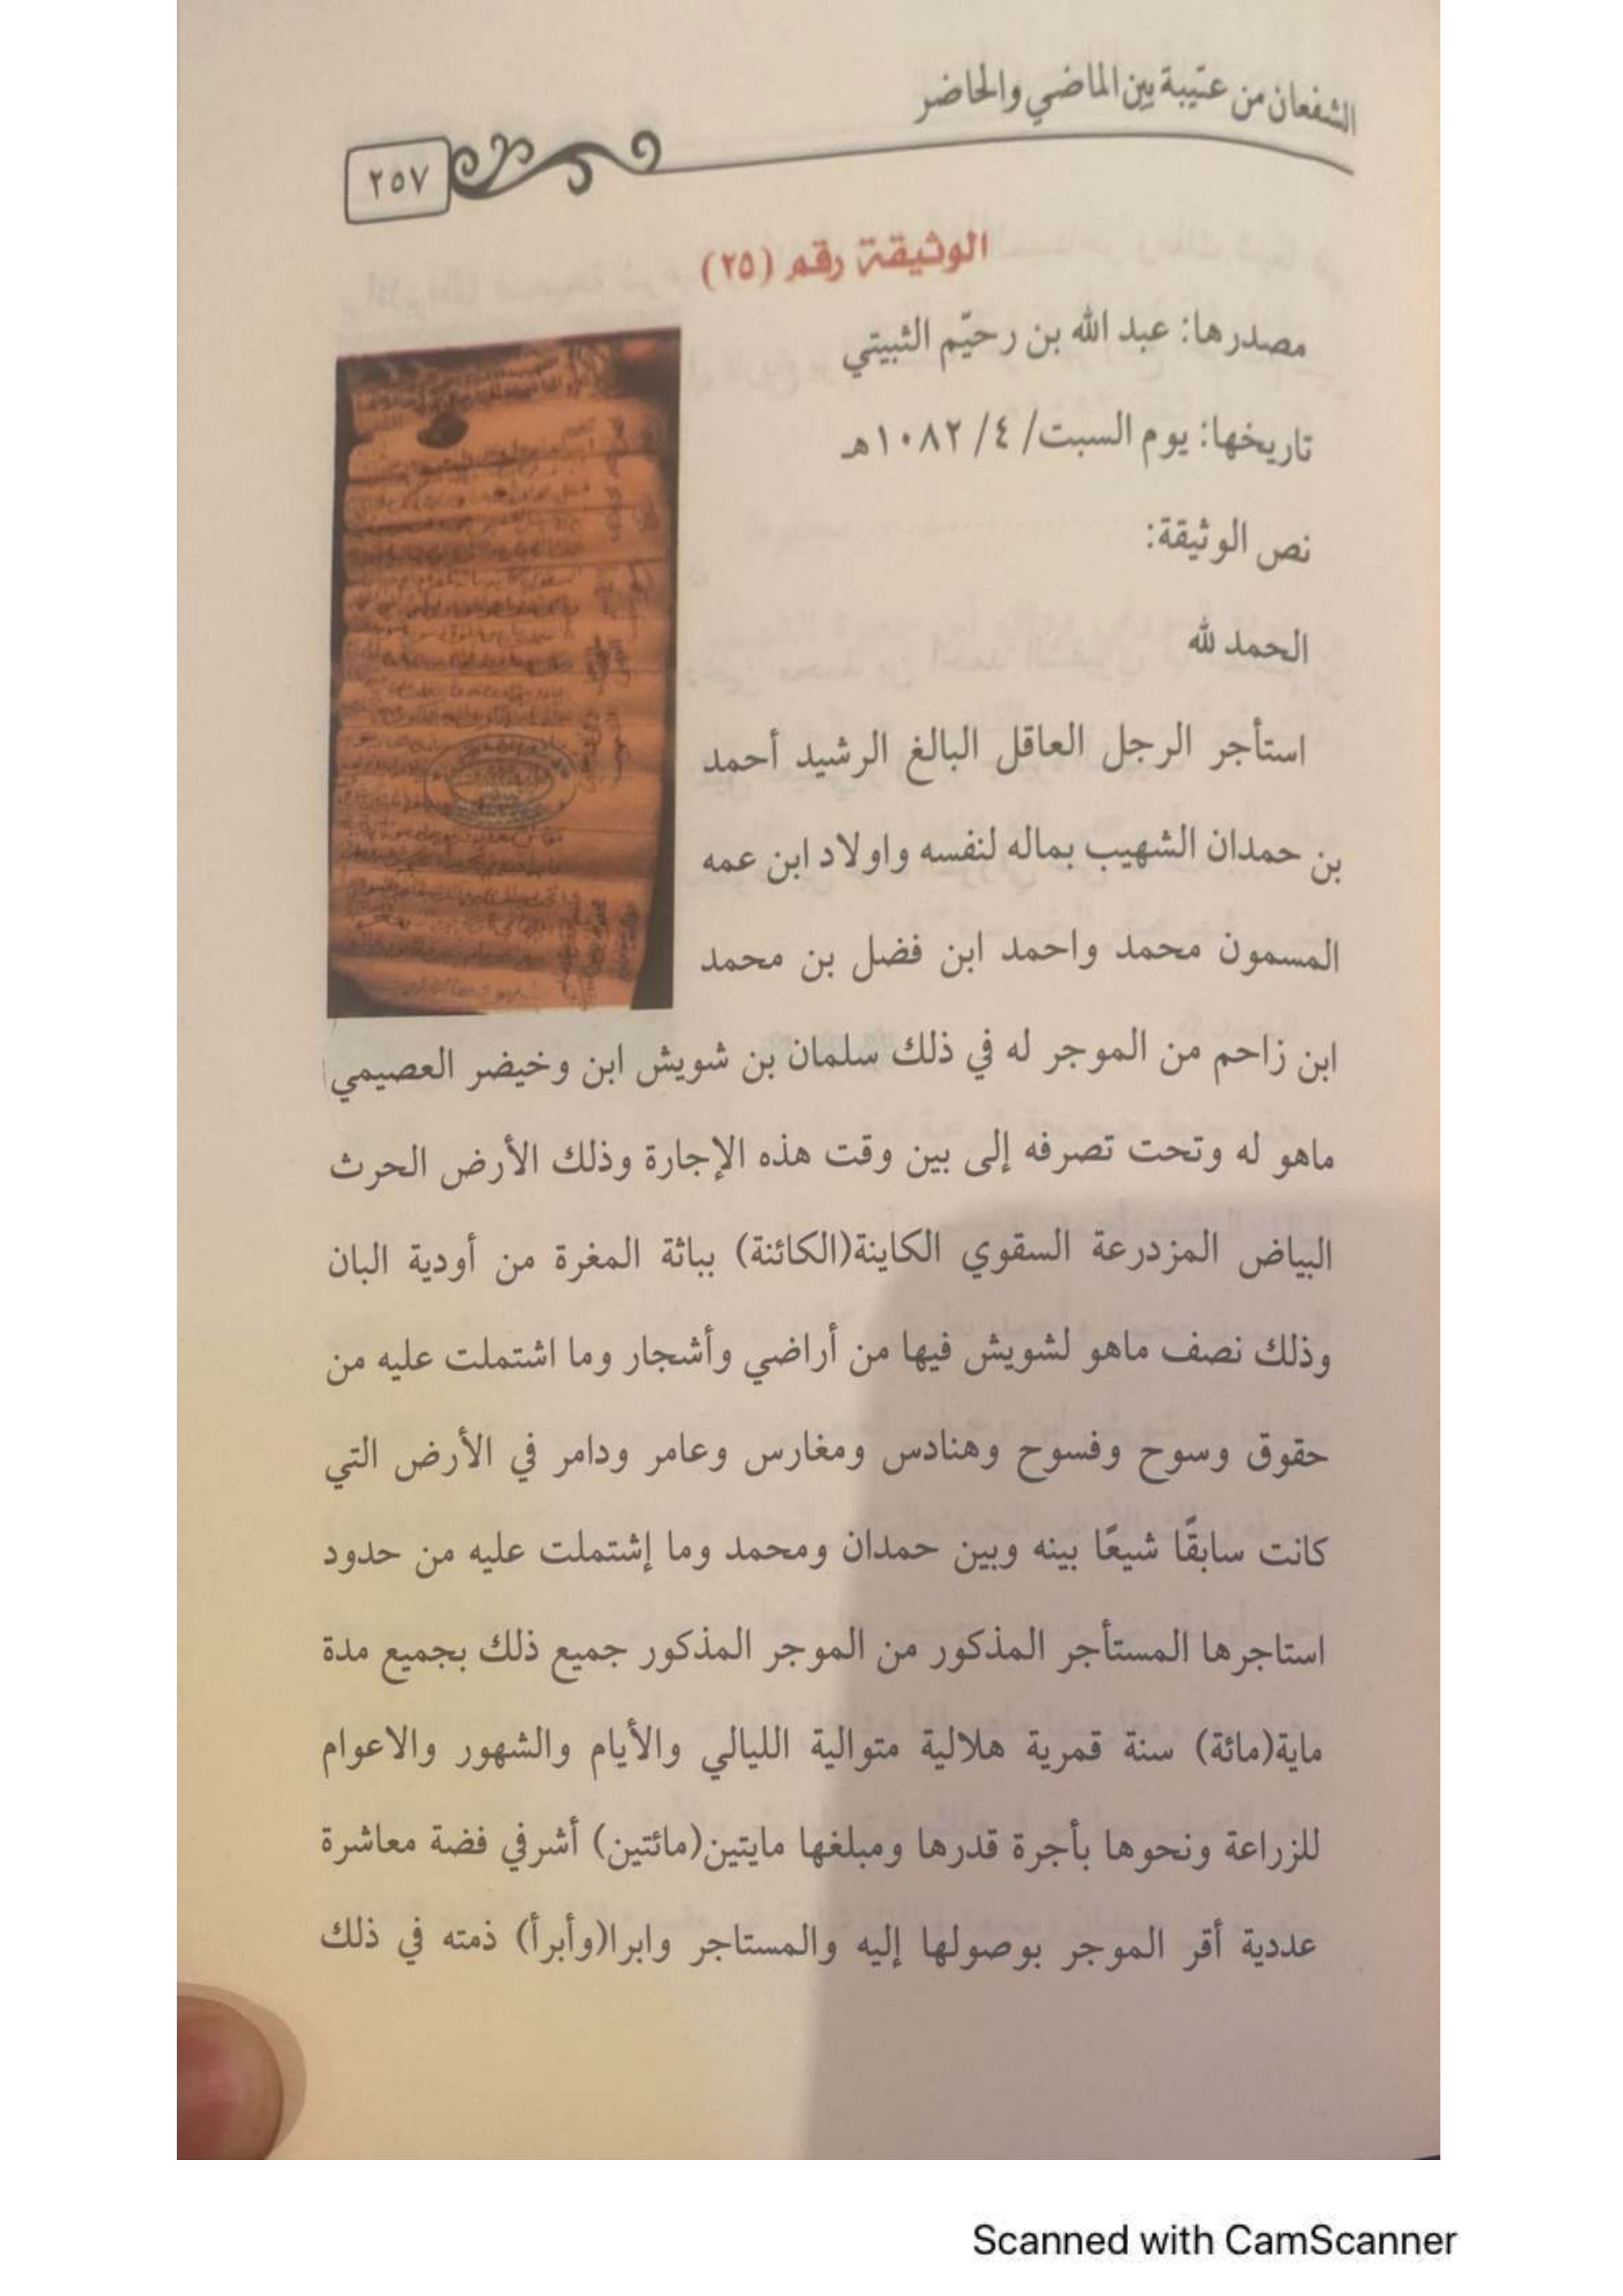 الشفعان من عتيبة بين الماضي والحاضر
٢٥٧
الوثيقة رقم (٢٥)
مصدرها: عبد الله بن رحيّم الثبيتي
تاريخها: يوم السبت/ ٤/ ١٠٨٢هـ
نص الوثيقة:
الحمد لله
استأجر الرجل العاقل البالغ الرشيد أحمد
بن حمدان الشهيب بماله لنفسه واولاد ابن عمه
المسمون محمد واحمد ابن فضل بن محمد
ابن زاحم من الموجر له في ذلك سلمان بن شويش ابن وخيضر العصيمي
ماهو له وتحت تصرفه إلى بين وقت هذه الإجارة وذلك الأرض الحرث
البياض المزدرعة السقوي الكاينة(الكائنة) بباثة المغرة من أودية البان
وذلك نصف ماهو لشويش فيها من أراضي وأشجار وما اشتملت عليه من
حقوق وسوح وفسوح وهنادس ومغارس وعامر ودامر في الأرض التي
كانت سابقًا شيعًا بينه وبين حمدان ومحمد وما إشتملت عليه من حدود
استاجرها المستأجر المذكور من الموجر المذكور جميع ذلك بجميع مدة
ماية(مائة) سنة قمرية هلالية متوالية الليالي والأيام والشهور والاعوام
للزراعة ونحوها بأجرة قدرها ومبلغها مايتين(مائتين) أشرفي فضة معاشرة
عددية أقر الموجر بوصولها إليه والمستاجر وابرا(وأبرأ) ذمته في ذلك
Scanned with CamScanner